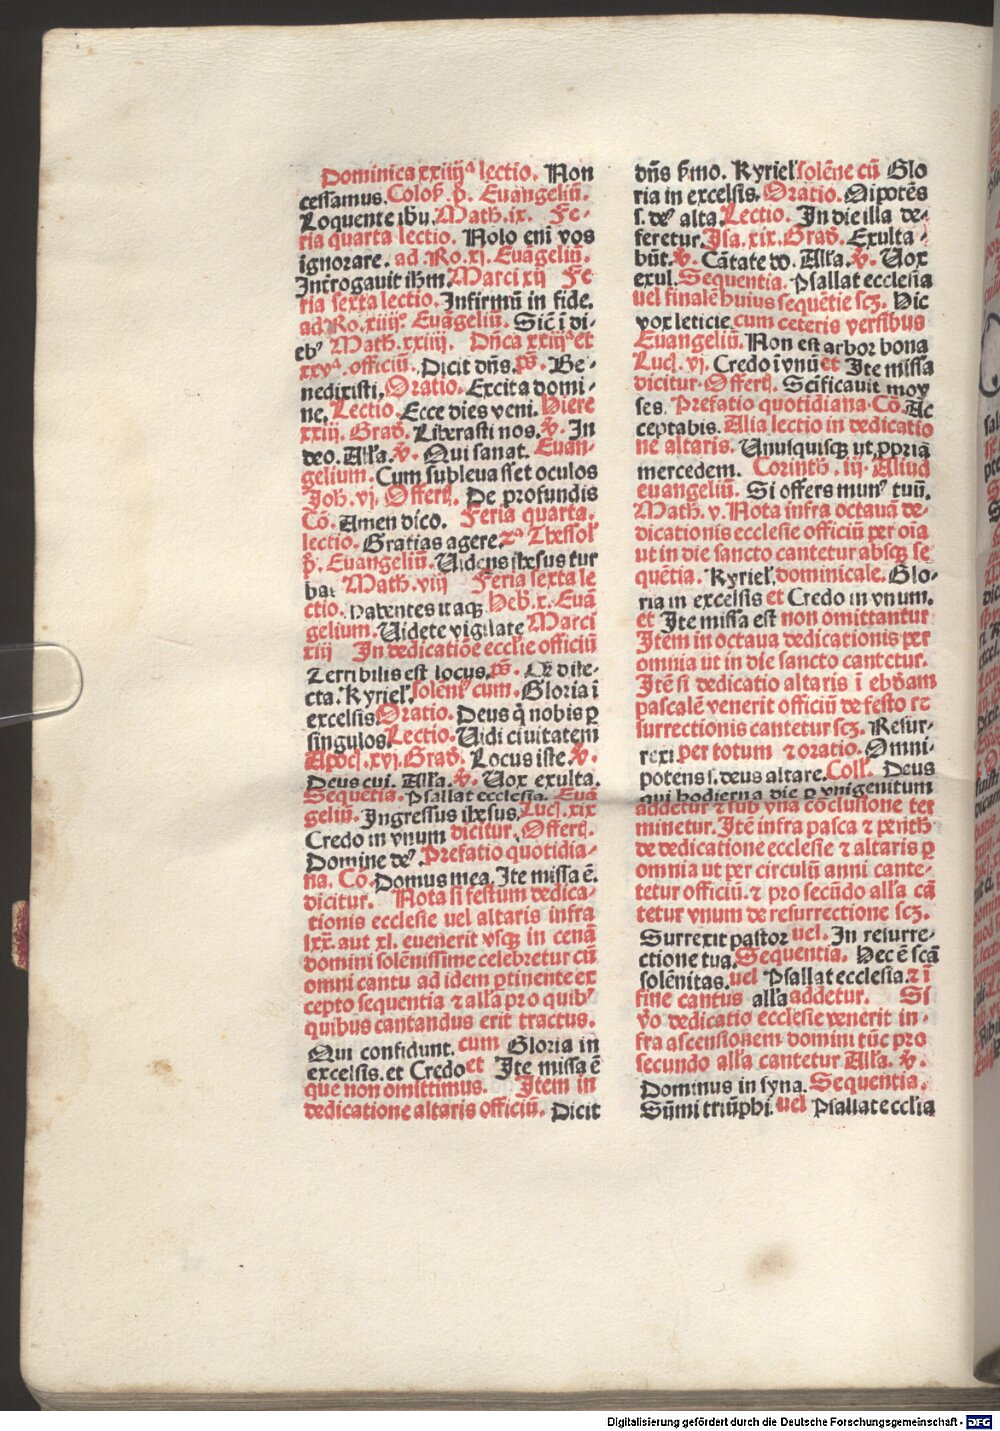 Dominica xxiiijᵃ lectio. Non
cessamus. Coloss. p̄. Euangeliū.
Loquente ihu. Math. ix. Fe-
ria quarta lectio. Nolo enī vos
ignorare. ad Ro. xj. Euāgeliū.
Intrrogauit ihm. Marci xij Fe
ria sexta lectio. Infirmū in fide.
ad Ro. xiiij° Euāgeliū. Sic̄ ī di-
ebꝰ Math. xxiiij. Dn̄ca xxiijᵃ et
xxvᵃ. officiū. Dicit dn̄s. ps̄. Be-
nedixisti. Oratio. Excita domi-
ne. Lectio. Ecce dies veni. Hiere
xxiij. Grad̄. Liberasti nos. ꝟ. In
deo. All'a. ꝟ. Qui sanat. Euan-
gelium. Cum subleuasset oculos
Joh̄. vj. Offert̄. De profundis
Cō. Amen dico. Feria quarta.
lectio. Gratias agere. 2ᵃ Thessol'
p̄. Euangeliū. Uidens ihesus tur
bas Math. viij Feria sexta le
ctio. Habentes itaqꝫ Heb̄. x. Euā
gelium. Uidete vigilate Marci
xiij In dedicatiōe ecclie officiū
Terribilis est locus. ps̄. Q̄ dile-
cta. Kyriel'. solēnꝰ cum. Gloria ī
excelsis. Oratio. Deus q̄ nobis ꝑ
singulos. Lectio. Uidi ciuitatem
Apoc̄. xxj. Grad̄. Locus iste. ꝟ.
Deus cui. All'a. ꝟ. Uox exulta.
Sequētia. Psallat ecclesia. Euā
geliū. Ingressus ihesus. Luc̄. xix
Credo in vnum dicitur. Offert̄.
Domine deꝰ. Prefatio quotidia-
na. Cō. Domus mea. Ite missa ē.
dicitur. Nota si festum dedica-
tionis ecclesie uel altaris infra
lxx̄. aut xl. euenerit vsqꝫ in cenā
domini solēnissime celebretur cū
omni cantu ad idem ꝑtinente ex
cepto sequentia ⁊ all'a pro quibꝰ
quibus cantandus erit tractus.
Qui confidunt. cum Gloria in
excelsis. et Credo et Ite missa ē
que non omittimus. Item in
dedicatione altaris officiū. Dicit
dn̄s ẜmo. Kyriel' solēne cū Glo
ria in excelsis. Oratio. Oīpotēs
s. deꝰ alta. Lectio. In die illa de-
feretur. Isa. xix. Grad̄. Exulta-
būt. ꝟ. Cātate do. All'a. ꝟ. Uox
exul. Sequentia. Psallat ecclesia
uel finalē huius sequētie scꝫ. Hic
vox leticie cum ceteris versibus
Euangeliū. Non est arbor bona
Luc̄. vj. Credo ī vnū et Ite missa
dicitur. Offert̄. Scīficauit moy
ses. Prefatio quotidiana. Cō. Ac
ceptabis. Alia lectio in dedicatio
ne altaris. Unusquisqꝫ ut ꝓpriā
mercedem. Corinth̄. iij. Aliud
euangeliū. Si offers munꝰ tuū.
Math̄. v. Nota infra octauā de-
dicationis ecclesie officiū per oīa
ut in die sancto cantetur absqꝫ se
quētia. Kyriel', dominicale. Glo-
ria in excelsis et Credo in vnum.
et Ite missa est non omittantur
Item in octaua dedicationis per
omnia ut in die sancto cantetur.
Itē si dedicatio altaris ī ebd̄am
pascalē venerit officiū de festo re
surrectionis cantetur scꝫ. Resur-
rexi per totum ⁊ oratio. Omni-
potens s. deus altare. Coll'. Deus
qui hodierna die ꝑ vnigenitum
addetur ⁊ sub vna cōclusione ter
minetur. Itē infra pasca ⁊ penth̄
de dedicatione ecclesie ⁊ altaris ꝑ
omnia ut per circulū anni cante-
tetur officiū. ⁊ pro secūdo all'a cā
tetur vnum de resurrectione scꝫ.
Surrexit pastor uel. In resurre-
ctione tua. Sequentia. Hec ē scā
solēnitas. uel Psallat ecclesia. ⁊ ī
fine cantus all'a addetur. Si
v̄o dedicatio ecclesie venerit in-
fra ascensionem domini tūc pro
secundo all'a cantetur All'a. ꝟ.
Dominus in syna. Sequentia.
Sūmi triūphi. uel Psallat ecclia
Digitalisierung gefördert durch die Deutsche Forschungsgemeinschaft - DFG